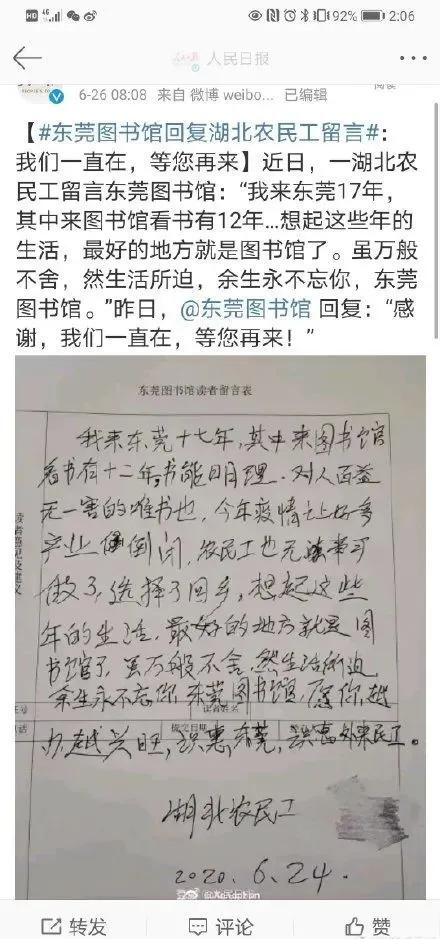 HD 4G 92% 2:06
人民日报
6-26 08:08 来自 微博 weibo... 已编辑
【#东莞图书馆回复湖北农民工留言#：
我们一直在，等您再来】近日，一湖北农
民工留言东莞图书馆：“我来东莞17年，
其中来图书馆看书有12年…想起这些年的
生活，最好的地方就是图书馆了。虽万般
不舍，然生活所迫，余生永不忘你，东莞
图书馆。”昨日，@东莞图书馆 回复：“感
谢，我们一直在，等您再来！”
东莞图书馆读者留言表
读者意见及建议
我来东莞十七年，其中来图书馆
看书有十二年，书能明理，对人百益
无一害的唯书也，今年疫情让好多
产业倒闭，农民工也无事可
做了，选择了回乡，想起这些
年的生活，最好的地方就是图
书馆了，虽万般不舍，然生活所迫
余生永不忘你，东莞图书馆，愿你越
办越兴旺，识惠东莞，识惠外来民工。
读者姓名
提交日期
湖北农民工
2020.6.24.
转发
评论
赞